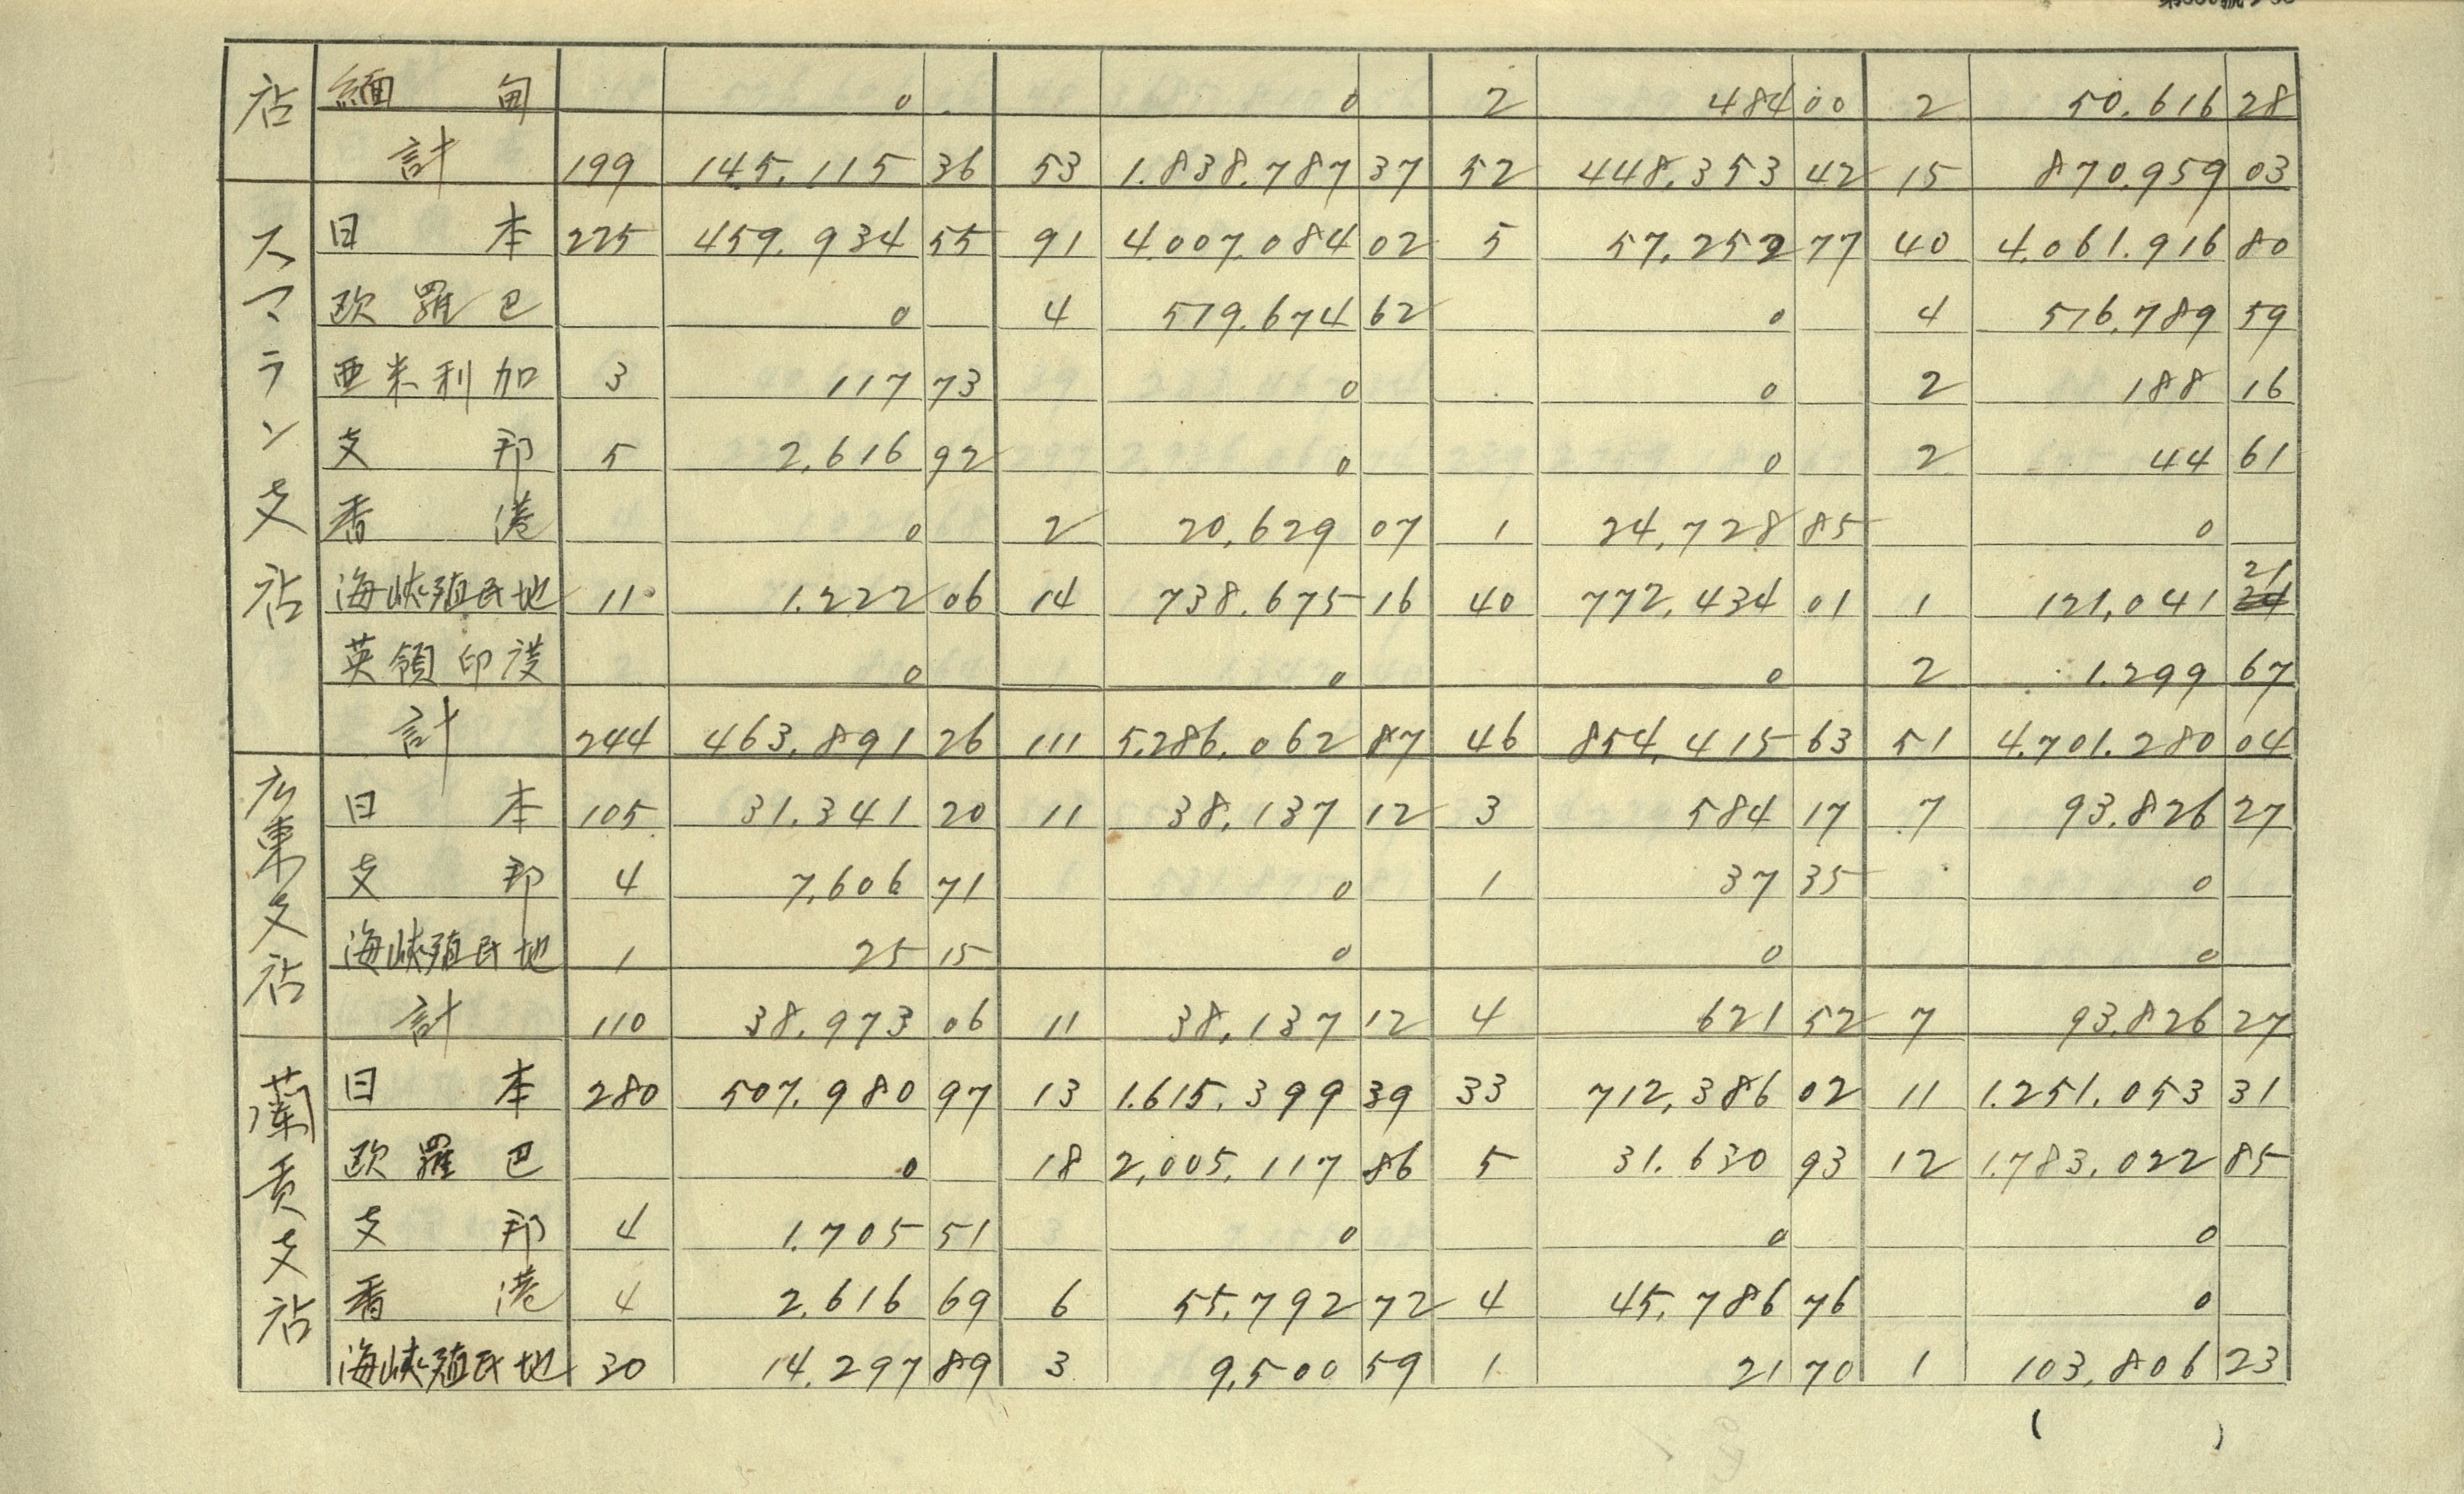 店 緬甸 0 0 2 484 00 2 50.616 28
計 199 145.115 36 53 1.838.787 37 52 448.353 42 15 870.959 03
スマラン支店 日本 225 459.934 55 91 4.007.084 02 5 57.252 77 40 4.061.916 80
欧羅巴 0 4 519.674 62 0 4 516.789 59
亜米利加 3 117 73 0 0 2 188 16
支那 5 2,616 92 0 0 2 44 61
香港 0 2 20,629 07 1 24,728 85 0
海峡殖民地 11 1.222 06 14 738.675 16 40 772.434 01 1 121,041 21
英領印度 0 0 0 2 1.299 67
計 244 463.891 26 111 5.286.062 87 46 854.415 63 51 4.701.280 04
広東支店 日本 105 31.341 20 11 38.137 12 3 584 17 7 93.826 27
支那 4 7,606 71 0 1 37 35 0
海峡殖民地 1 25 15 0 0 0
計 110 38.973 06 11 38.137 12 4 621 52 7 93.826 27
蘭貢支店 日本 280 507.980 97 13 1.615.399 39 33 712,386 02 11 1.251.053 31
欧羅巴 0 18 2,005.117 86 5 31.630 93 12 1.783.022 85
支那 4 1.705 51 0 0 0
香港 4 2.616 69 6 55.792 72 4 45.786 76 0
海峡殖民地 30 14.297 89 3 9.500 59 1 21 70 1 103.806 23